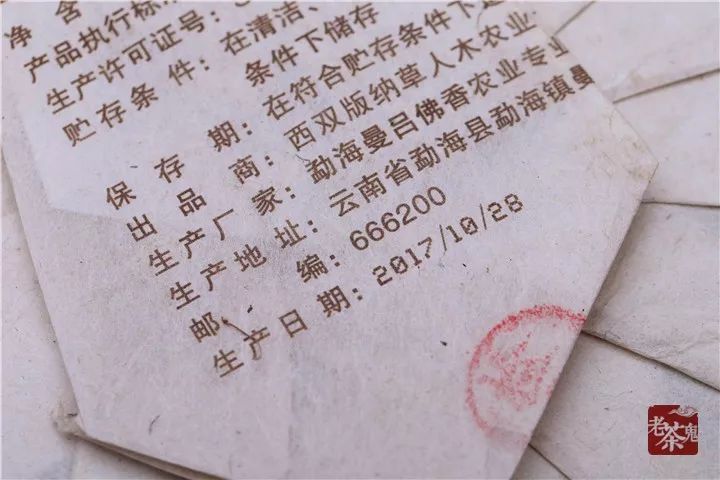 净 含
产品执行标
生产许可证号:
贮 存 条 件: 在清洁、
条件下储存
保 存 期: 在符合贮存条件下
出 品 商: 西双版纳草人木农业
生产厂家: 勐海曼吕佛香农业专业
生产地址: 云南省勐海县勐海镇曼
邮 编: 666200
生产日期: 2017/10/28
老茶鬼